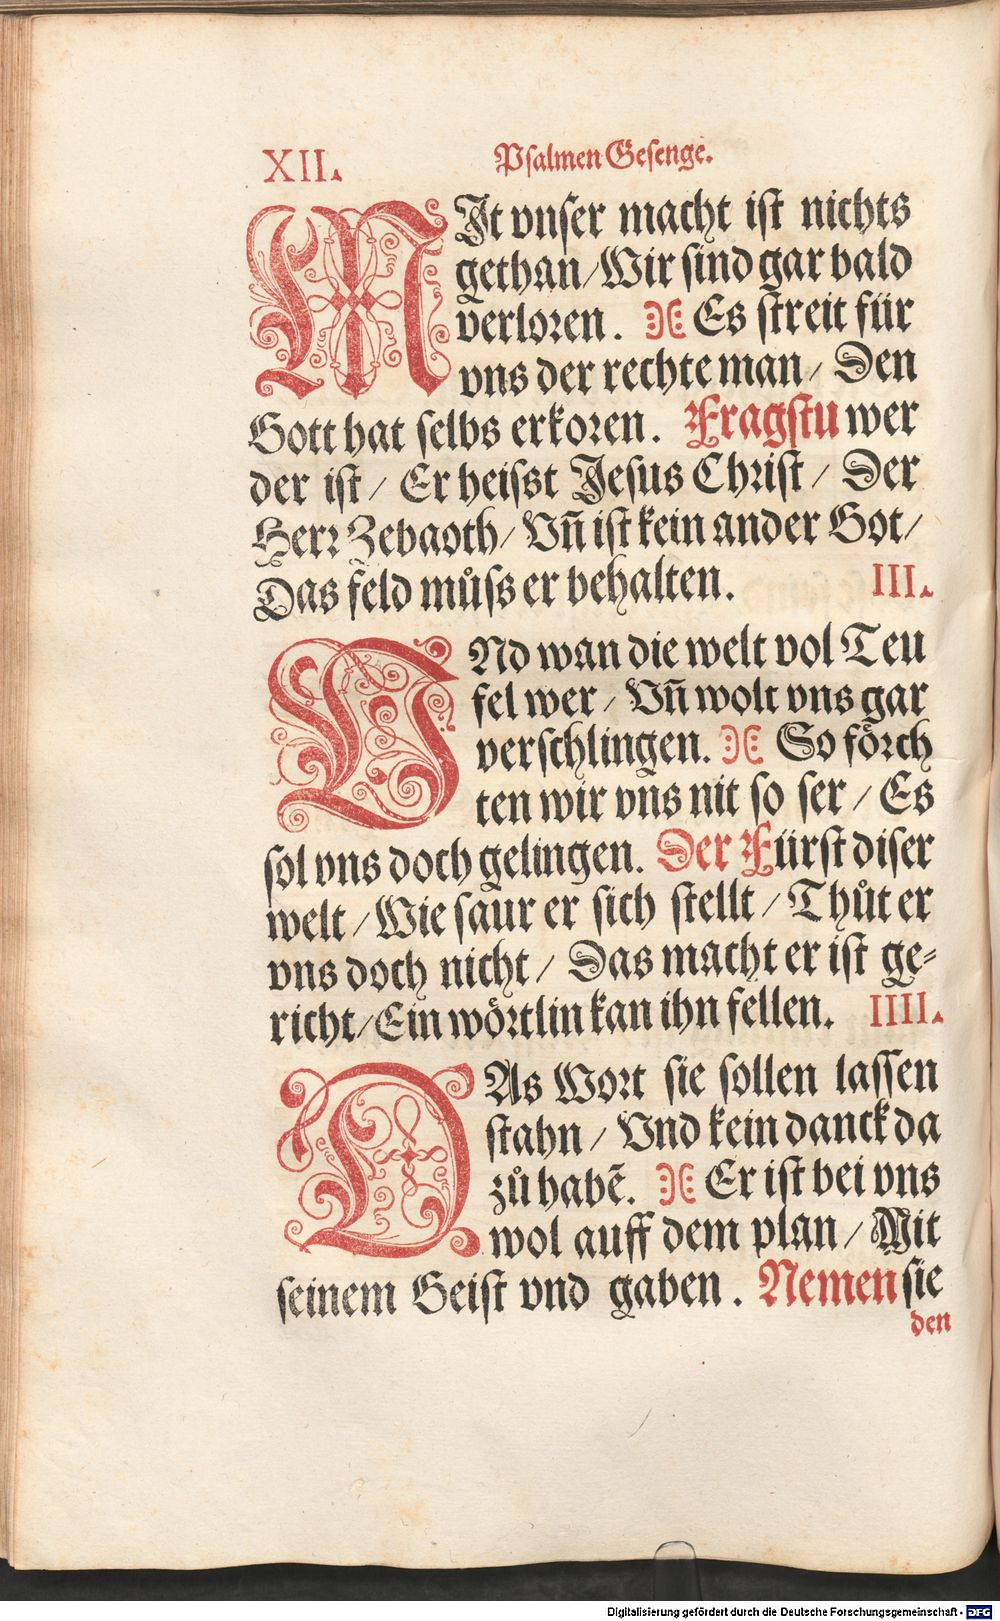 XII. Psalmen Gesenge.
MIt vnser macht ist nichts
gethan/Wir sind gar bald
verloren. Es streit für
vns der rechte man/ Den
Gott hat selbs erkoren. Fragstu wer
der ist/ Er heisst Jesus Christ/ Der
Herr Zebaoth/ Vñ ist kein ander Got/
Das feld můss er behalten. III.
VNd wan die welt vol Teu
fel wer/ Vñ wolt vns gar
verschlingen. So förch
ten wir vns nit so ser/ Es
sol vns doch gelingen. Der Fürst diser
welt/Wie saur er sich stellt/Thůt er
vns doch nicht/ Das macht er ist ge-
richt/Ein wörtlin kan ihn fellen. IIII.
DAs Wort sie sollen lassen
stahn/ Vnd kein danck da
zů habē. Er ist bei vns
wol auff dem plan/Mit
seinem Geist vnd gaben. Nemen sie
den
Digitalisierung gefördert durch die Deutsche Forschungsgemeinschaft - DFG